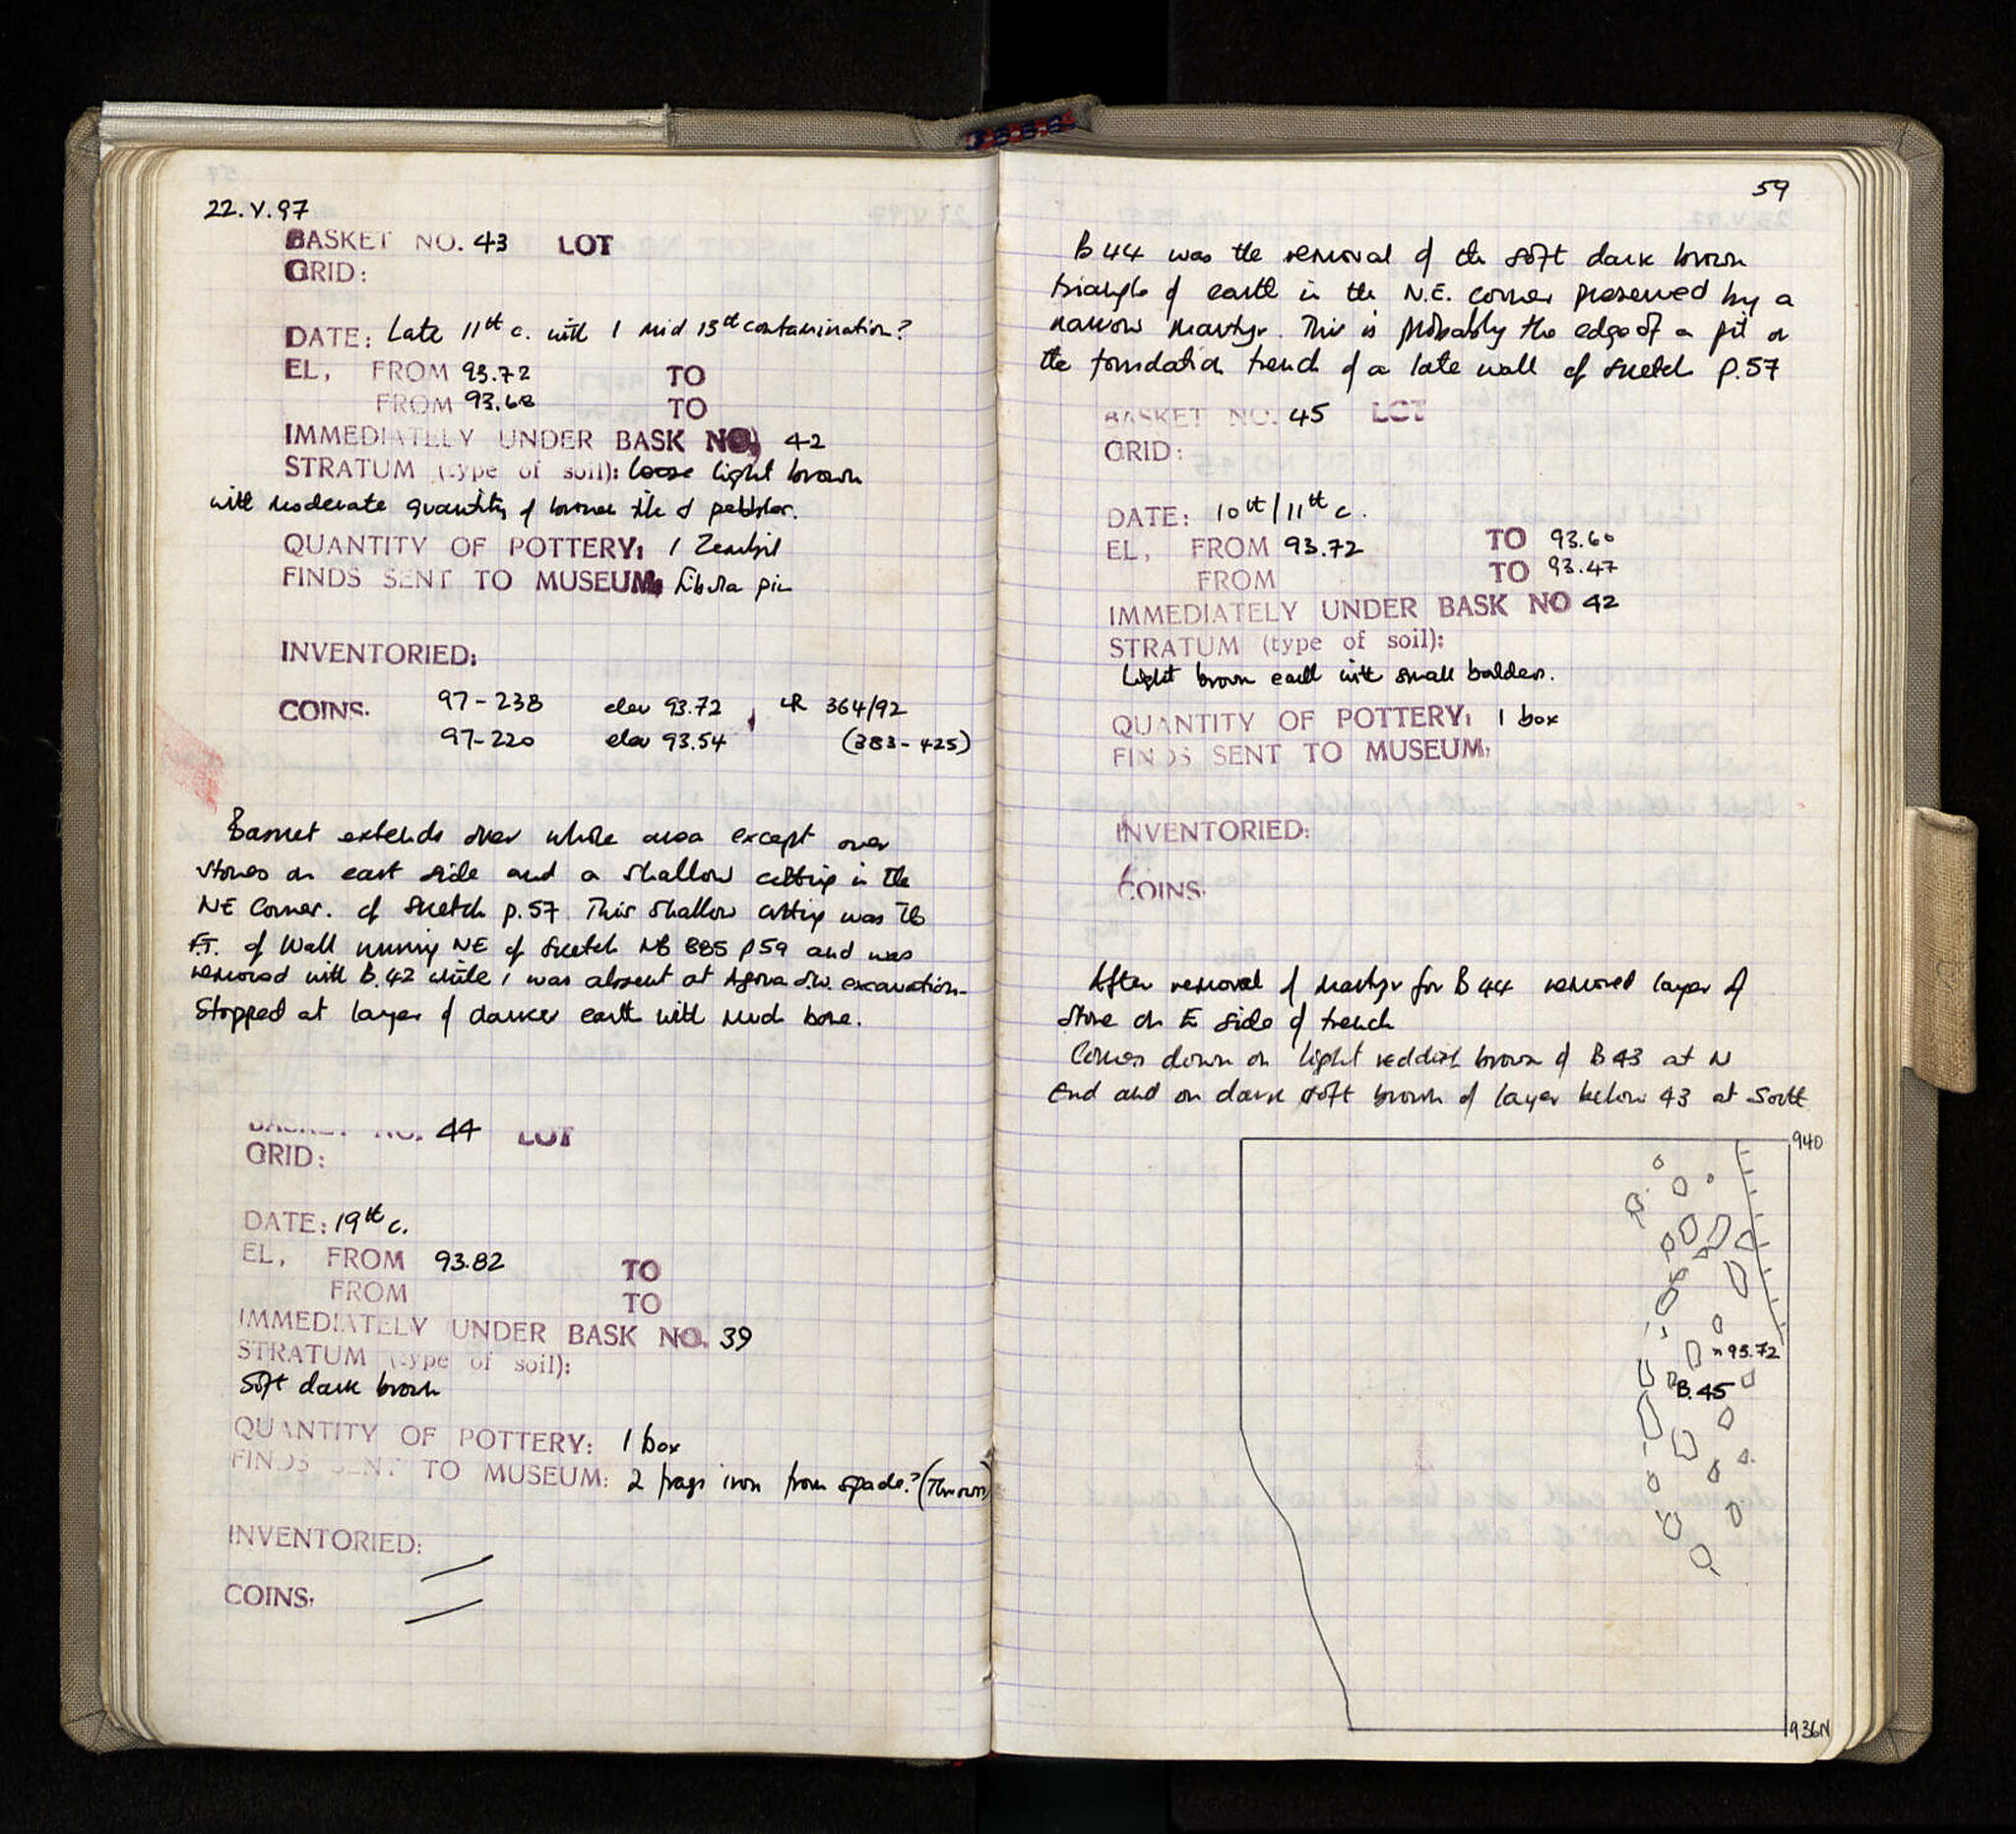 22.V.97
BASKET NO. 43 LOT
GRID:
DATE: Late 11th c. with 1 mid 13th contamination?
EL, FROM 93.72 TO
FROM 93.68 TO
IMMEDIATELY UNDER BASK NO, 42
STRATUM (type of soil): loose light brown
with moderate quantity of tile & pebbles.
QUANTITY OF POTTERY: 1 Zembil
FINDS SENT TO MUSEUM: fibula pin
INVENTORIED:
COINS. 97-238 elev 93.72 , LR 364/92
97-220 elev 93.54 (383-425)
Basket extends over whole area except over
stones on east side and a shallow cutting in the
NE Corner. cf sketch p.57. This shallow cutting was the
F.T. of wall running NE cf sketch NB 885 p59 and was
removed with B.42 while I was absent at Agora S.W. excavation.
Stopped at layer of darker earth with much bone.
BASKET NO. 44 LOT
GRID:
DATE: 19th c.
EL, FROM 93.82 TO
FROM TO
IMMEDIATELY UNDER BASK NO. 39
STRATUM (type of soil):
Soft dark brown
QUANTITY OF POTTERY: 1 box
FINDS SENT TO MUSEUM: 2 frags iron from spade? (Thrown)
INVENTORIED:
COINS.
59
B 44 was the removal of the soft dark brown
triangle of earth in the N.E. corner preserved by a
narrow martyr. This is probably the edge of a pit or
the foundation trench of a late wall cf sketch p.57
BASKET NO. 45 LOT
GRID:
DATE: 10th/11th c.
EL, FROM 93.72 TO 93.60
FROM TO 93.47
IMMEDIATELY UNDER BASK NO 42
STRATUM (type of soil):
Light brown earth with small bolders.
QUANTITY OF POTTERY: 1 box
FINDS SENT TO MUSEUM.
INVENTORIED:
COINS.
After removal of martyr for B 44 removed layer of
stone on E side of trench
Comes down on light reddish brown of B43 at N
End and on dark soft brown of layer below 43 at South
940
93.72
B.45
936N